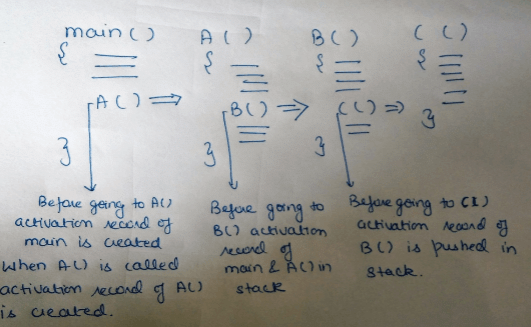 main()
{
A() ⇒
}
Before going to A()
activation record of
main is created
when A() is called
activation record of A()
is created.
A()
{
B() ⇒
}
Before going to
B() activation
record of
main & A() in
stack
B()
{
C() ⇒
}
Before going to C()
activation record of
B() is pushed in
stack.
C ()
{
}